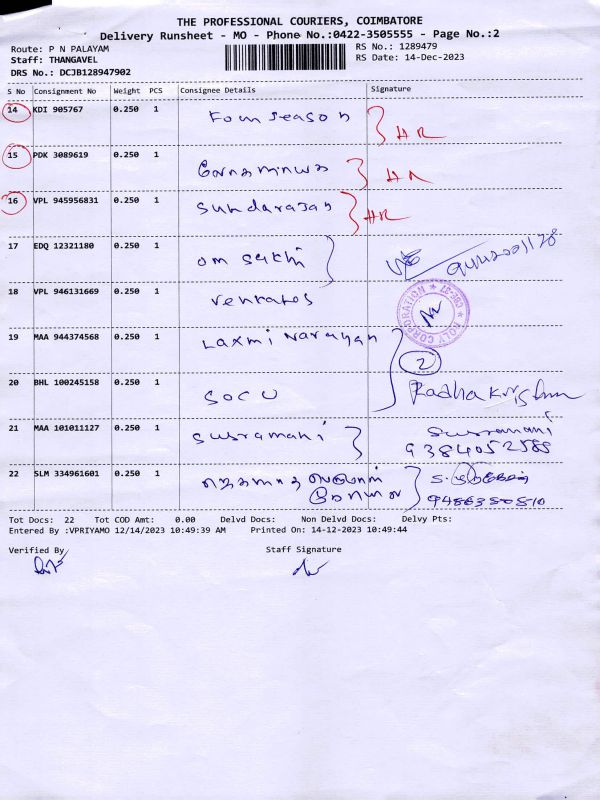 THE PROFESSIONAL COURIERS, COIMBATORE
Delivery Runsheet - MO - Phone No.:0422-3505555 - Page No.:2
Route: P N PALAYAM
RS No.: 1289479
Staff: THANGAVEL
RS Date: 14-Dec-2023
DRS No.: DCJB128947902
S No Consignment No Weight PCS Consignee Details Signature
14 KDI 905767 0.250 1 Four season HR
15 PDK 3089619 0.250 1 HR
16 VPL 945956831 0.250 1 Sundarajan HR
17 EDQ 12321180 0.250 1 om sakthi
18 VPL 946131669 0.250 1 venkates
HOLY CORPORATION ★ CBE-37 ★
19 MAA 944374568 0.250 1 Laxmi Narayan
2
20 BHL 100245158 0.250 1 SOCU Radhakrishnan
21 MAA 101011127 0.250 1 Susramani Susramani
9384052585
22 SLM 334961601 0.250 1
Tot Docs: 22 Tot COD Amt: 0.00 Delvd Docs: Non Delvd Docs: Delvy Pts:
Entered By :VPRIYAMO 12/14/2023 10:49:39 AM Printed On: 14-12-2023 10:49:44
Verified By Staff Signature